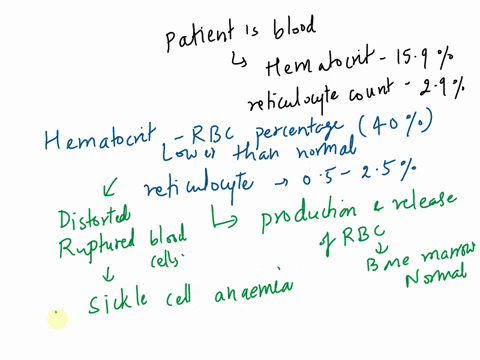 Patient is blood
↳ Hematocrit - 15.9 %
reticulocyte count - 2.9 %
Hematocrit - RBC percentage (40 %)
Lower than normal
↙ reticulocyte → 0.5 - 2.5 %
Distorted
Ruptured blood cells.
↳ production & release
of RBC
↓
Bone marrow
Normal
↓
Sickle cell anaemia